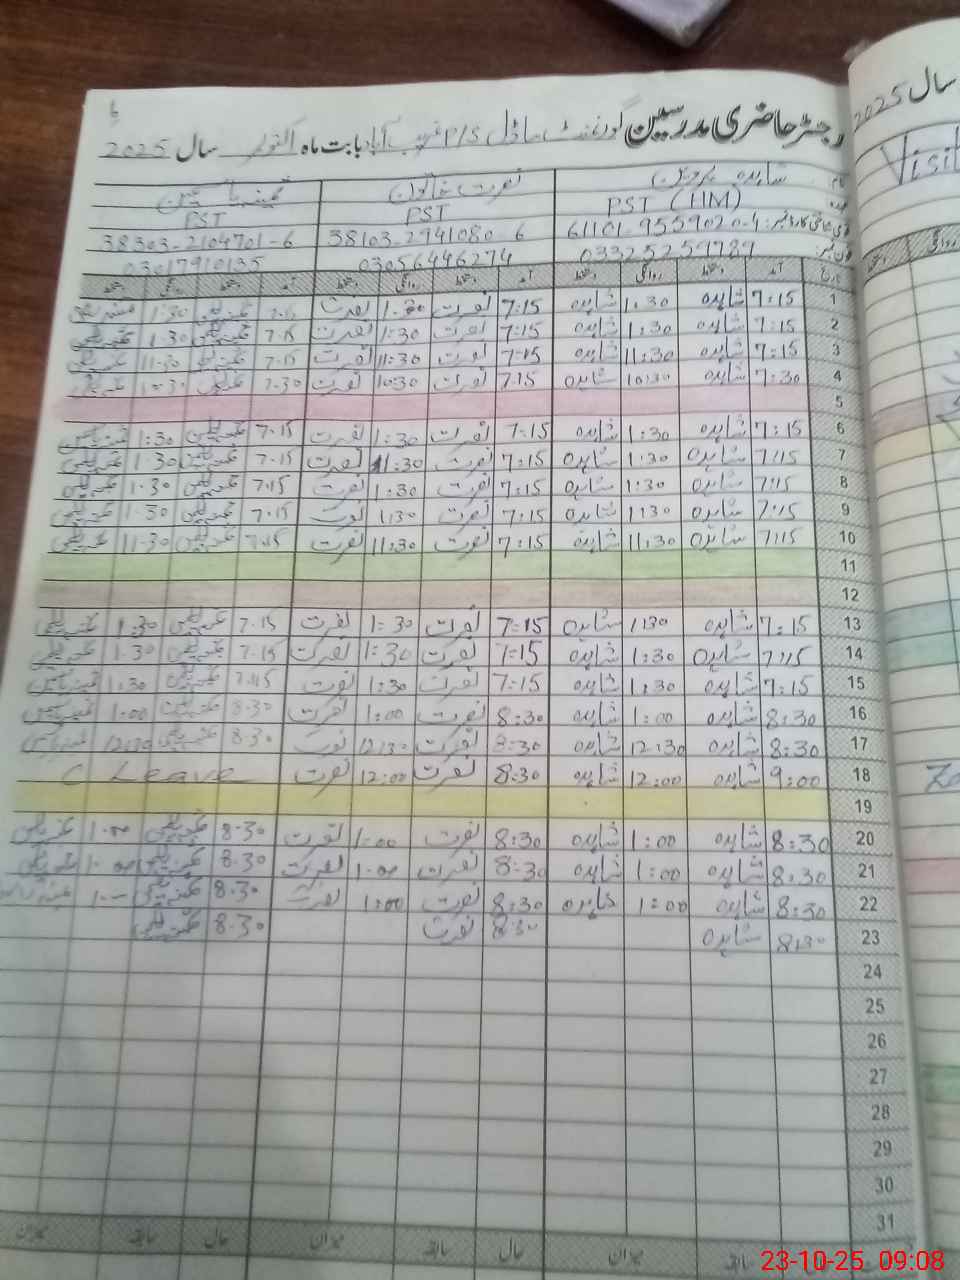 رجسٹر حاضری مدرسین گورنمنٹ ماڈل P/S غریب آباد بابت ماہ اکتوبر سال 2025
نام شاہدہ پروین نصرت خاتون
عہدہ PST (HM) PST PST
قومی شناختی کارڈ نمبر: 61101-9559020-4 38103-2941080-6 38303-2104701-6
فون نمبر: 03325259789 03056446274 03017910135
تاریخ آمد دستخط روانگی دستخط آمد دستخط روانگی دستخط آمد دستخط روانگی دستخط
1 7:15 شاہدہ 1:30 شاہدہ 7:15 نصرت 1:30 نصرت 7.15 1:30
2 7:15 شاہدہ 1:30 شاہدہ 7:15 نصرت 1:30 نصرت 7.15 1.30
3 7:15 شاہدہ 11:30 شاہدہ 7:15 نصرت 11:30 نصرت 7.15 11.30
4 7:30 شاہدہ 10:30 شاہدہ 7:15 نصرت 10:30 نصرت 7.30 10.30
5
6 7:15 شاہدہ 1:30 شاہدہ 7:15 نصرت 1:30 نصرت 7.15 1:30
7 7:15 شاہدہ 1:30 شاہدہ 7:15 نصرت 1:30 نصرت 7.15 1.30
8 7:15 شاہدہ 1:30 شاہدہ 7:15 نصرت 1:30 نصرت 7.15 1.30
9 7:15 شاہدہ 1:30 شاہدہ 7:15 نصرت 1:30 نصرت 7.15 1.30
10 7:15 شاہدہ 11:30 شاہدہ 7:15 نصرت 11:30 نصرت 7.15 11.30
11
12
13 7:15 شاہدہ 1:30 شاہدہ 7:15 نصرت 1:30 نصرت 7.15 1.30
14 7:15 شاہدہ 1:30 شاہدہ 7:15 نصرت 1:30 نصرت 7.15 1.30
15 7:15 شاہدہ 1:30 شاہدہ 7:15 نصرت 1:30 نصرت 7.15 1:30
16 8:30 شاہدہ 1:00 شاہدہ 8:30 نصرت 1:00 نصرت 8.30 1:00
17 8:30 شاہدہ 12:30 شاہدہ 8:30 نصرت 12:30 نصرت 8.30 12:30
18 9:00 شاہدہ 12:00 شاہدہ 8:30 نصرت 12:00 نصرت C Leave
19
20 8:30 شاہدہ 1:00 شاہدہ 8:30 نصرت 1:00 نصرت 8.30 1.00
21 8:30 شاہدہ 1:00 شاہدہ 8:30 نصرت 1.00 نصرت 8.30 1.00
22 8:30 شاہدہ 1:00 شاہدہ 8:30 نصرت 1:00 نصرت 8.30
23 8:30 شاہدہ 8:30 نصرت 8.30
24
25
26
27
28
29
30
31
سابقہ میزان حال سابقہ میزان حال سابقہ میزان
سال 2025
Visit
روانگی دستخط
23-10-25 09:08